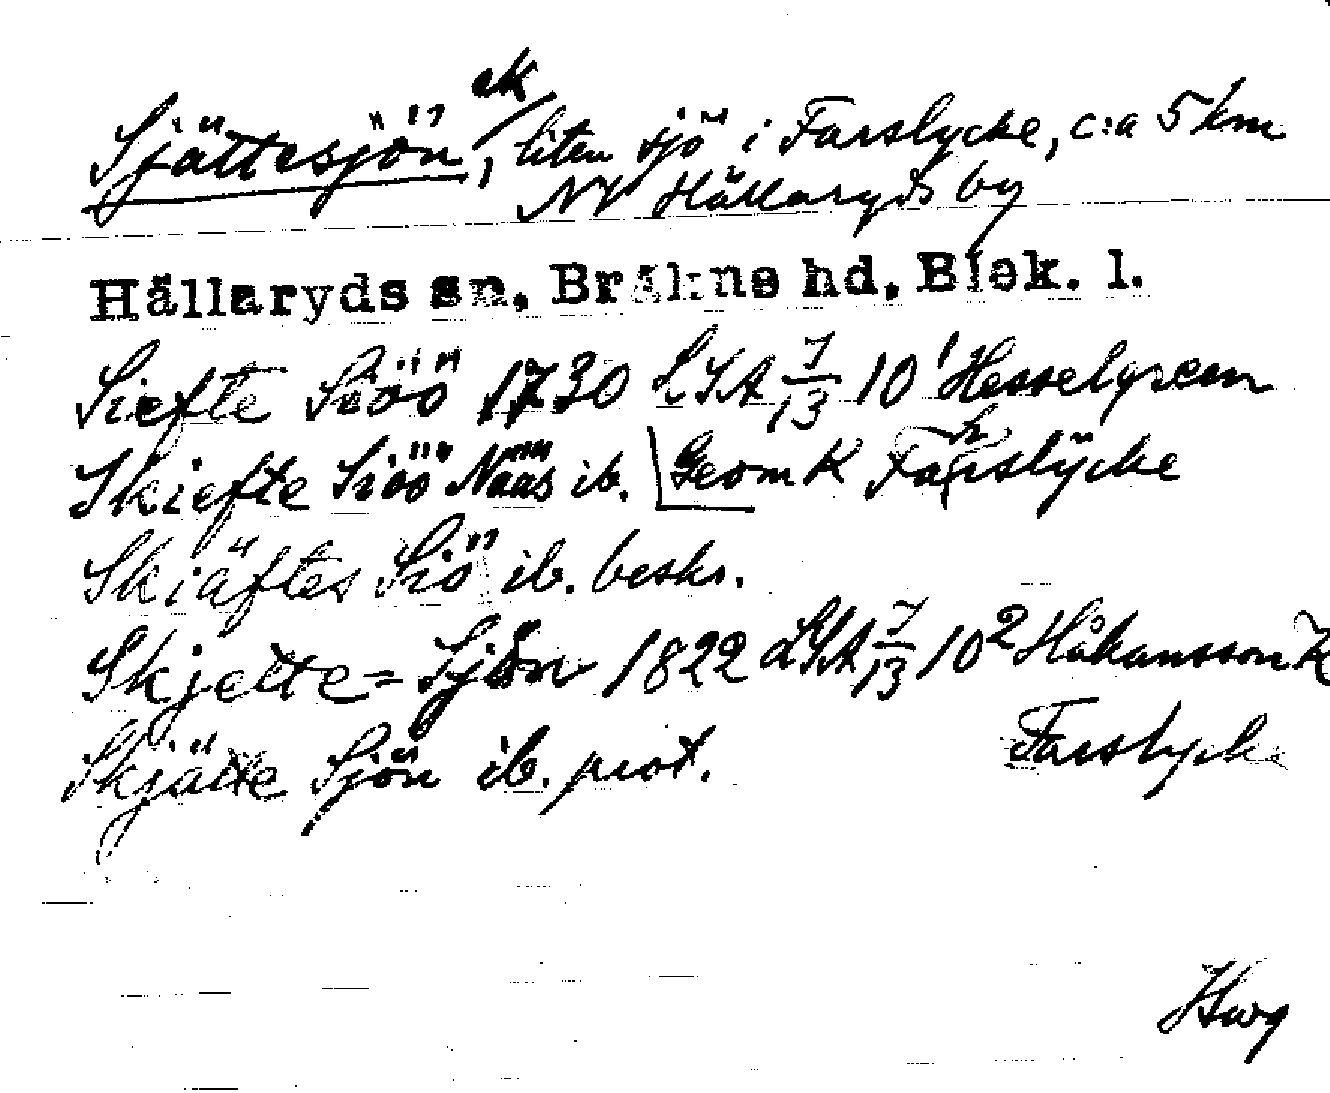 ek
Sjättesjön, liten sjö i Farslycke, c:a 5 km
NV Hällaryds by
Hällaryds sn, Bräkne hd, Blek. l.
Siefte Siöö 1730 LSA 7/13 10¹ Hesselgreen
Skiefte Siöö Nääs ib. Geom K Fahrslÿcke
Skiäftes Siö ib. beskr.
Skjette= Sjön 1822 LSA 7/13 10² Håkansson K
Skjätte Sjön ib. prot. Farslycke